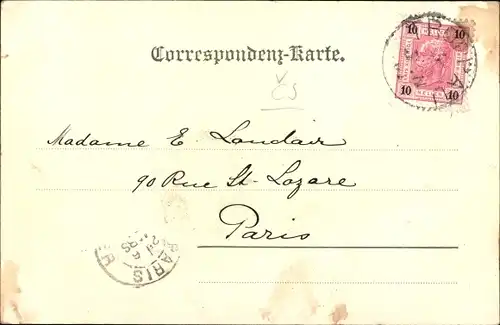 Correspondenz-Karte.
10 10
10 10
ČS
Madame E. Landair
90 Rue St-Lazare
Paris
PARIS